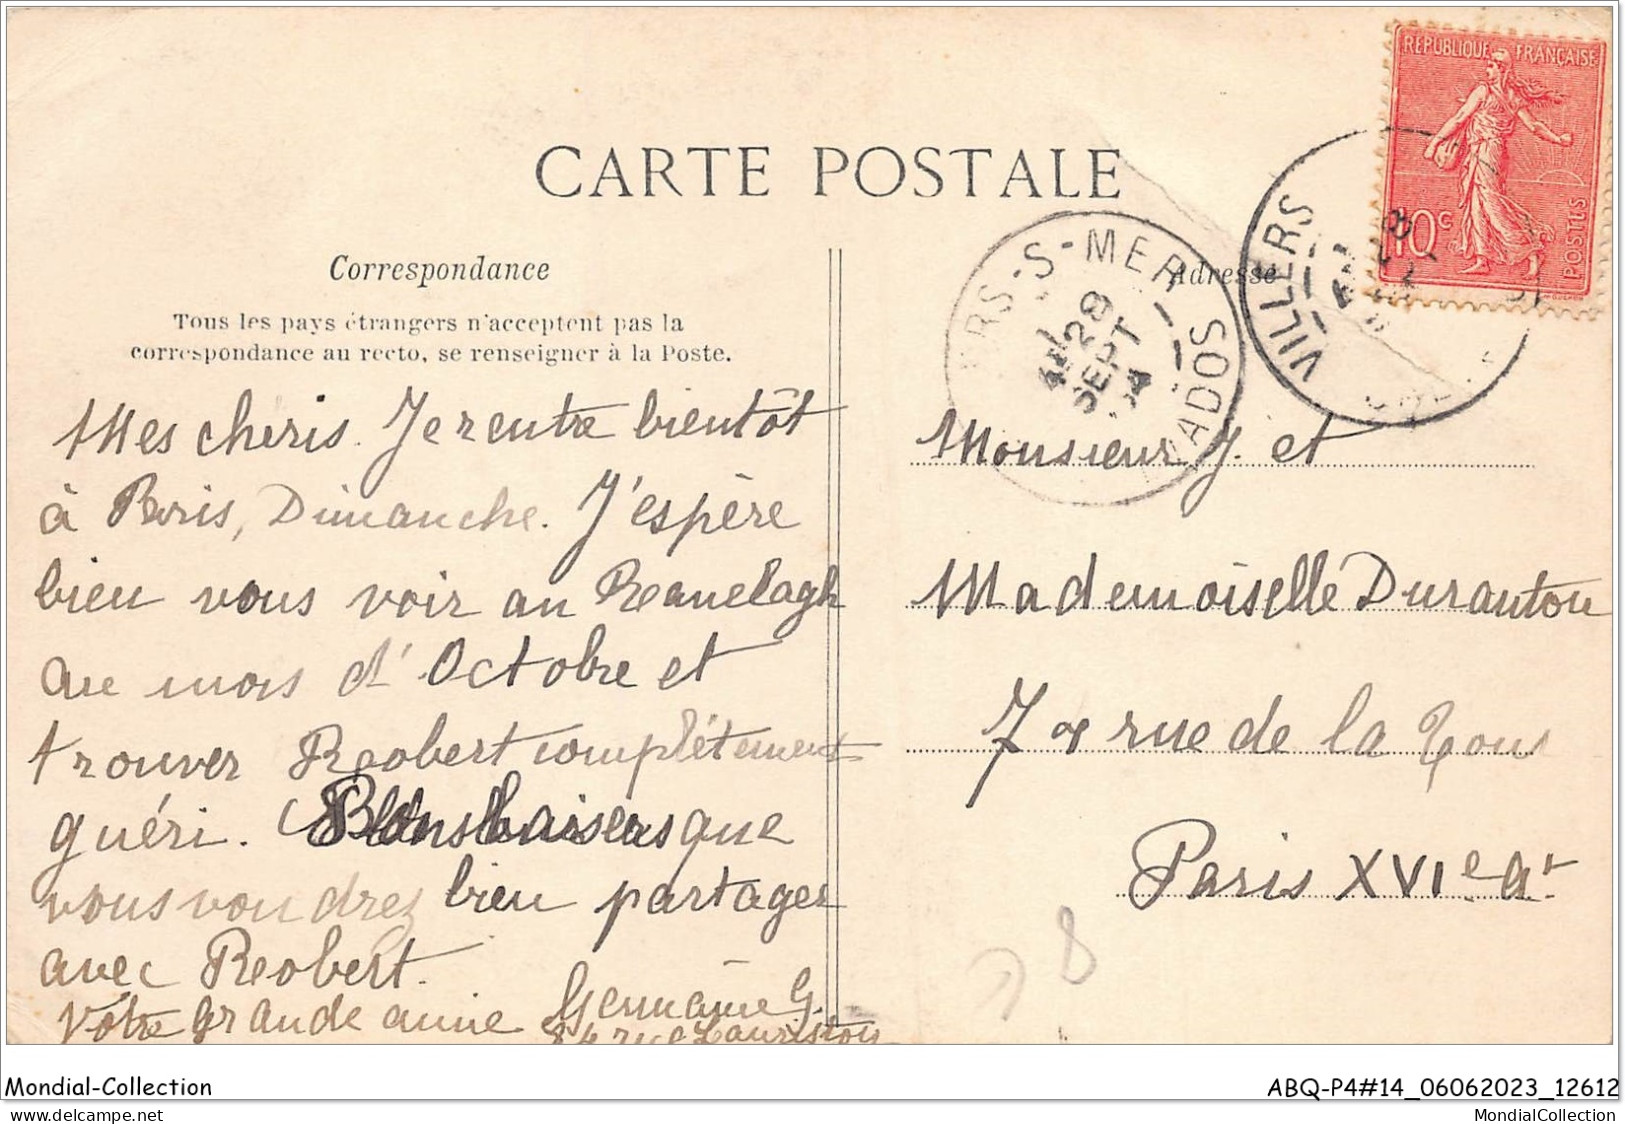 CARTE POSTALE
RÉPUBLIQUE FRANÇAISE
10c
POSTES
VILLERS
RS-S-MER
28
SEPT
04
VADOS
Correspondance
Adresse
Tous les pays étrangers n'acceptent pas la
correspondance au recto, se renseigner à la Poste.
Mes cheris. Je rentre bientôt
à Paris, Dimanche. J'espère
bien vous voir au Ranelagh
au mois d'Octobre et
trouver Robert complètement
guéri. Bons baisers que
vous voudrez bien partager
avec Robert.
Votre grande amie Germaine G.
rue Lauriston
Monsieur J. et
Mademoiselle Duranton
7 rue de la Tour
Paris XVIe Ar
78
Mondial-Collection
ABQ-P4#14_06062023_12612
delcampe.net
MondialCollection